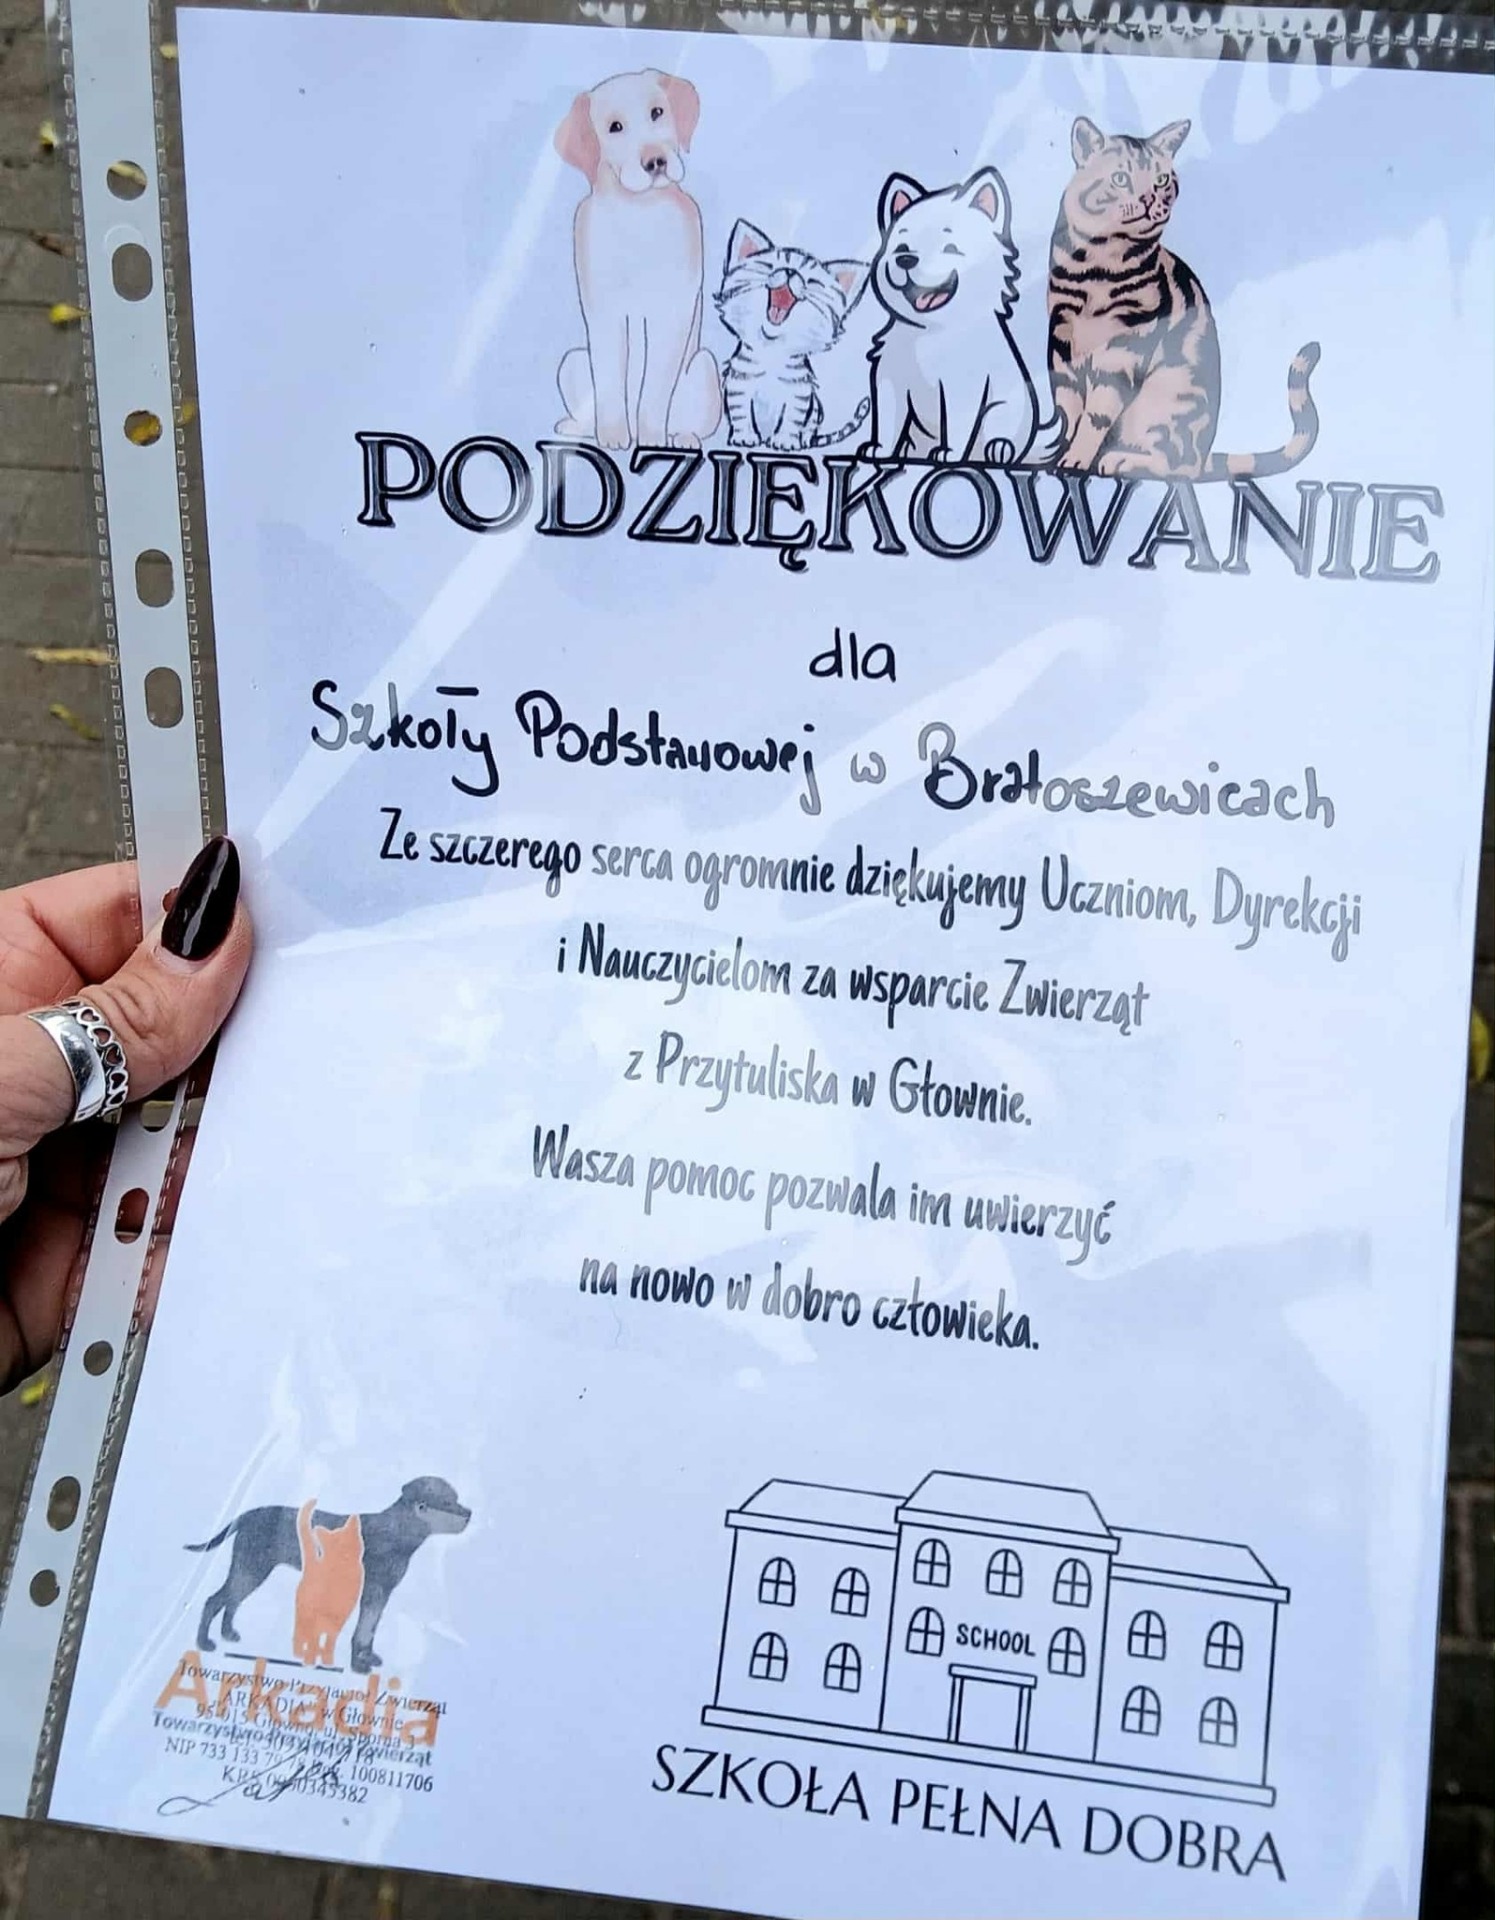 PODZIĘKOWANIE
dla
Szkoły Podstawowej w Bratoszewicach
Ze szczerego serca ogromnie dziękujemy Uczniom, Dyrekcji
i Nauczycielom za wsparcie Zwierząt
z Przytuliska w Głownie.
Wasza pomoc pozwala im uwierzyć
na nowo w dobro człowieka.
SCHOOL
SZKOŁA PEŁNA DOBRA
Arkadia
Towarzystwo Przyjaciół Zwierząt
"ARKADIA" w Głownie
95-015 Głowno, ul.
Towarzystwo Przyjaciół Zwierząt
NIP 733 133 79 100811706
KRS 0000345382